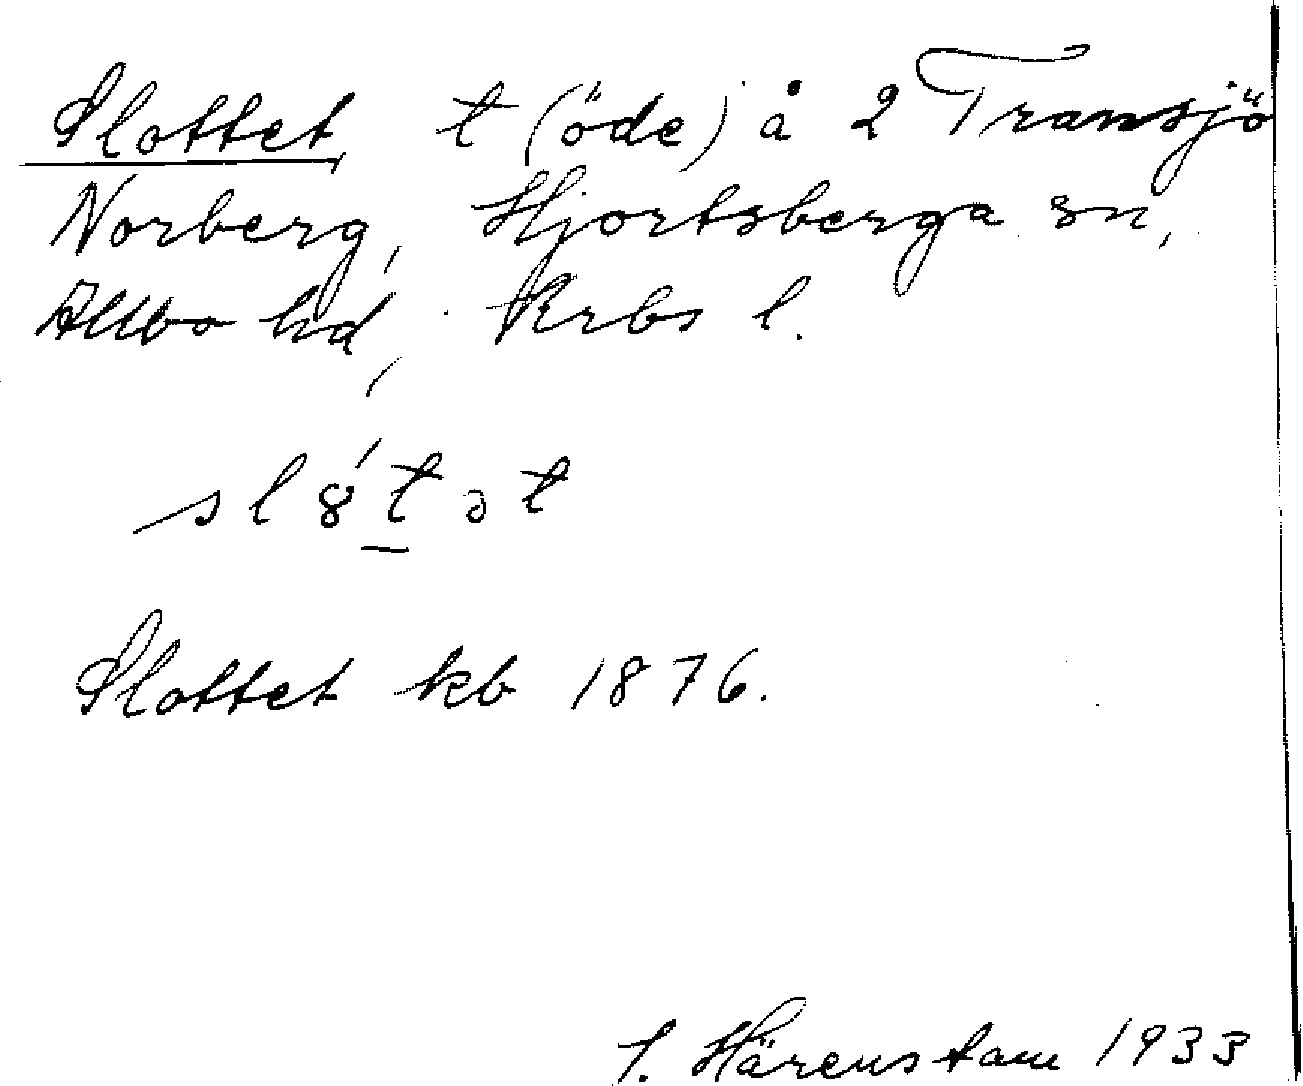 Slottet, t (öde) å 2 Transjö
Norberg, Hjortsberga sn,
Allbo hd, Krbs l.
sl8́t̲ət
Slottet kb 1876.
Härenstam 1933